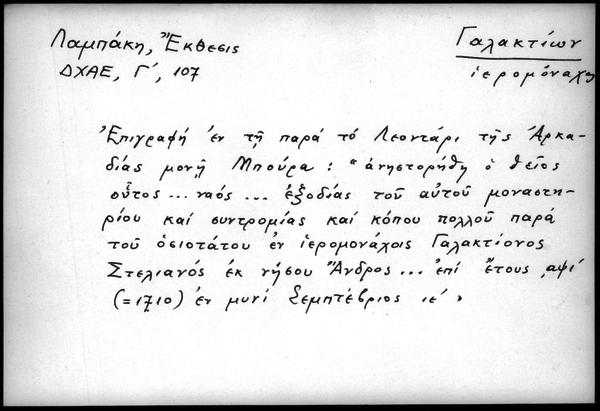 Λαμπάκη, Ἔκθεσις
ΔΧΑΕ, Γ΄, 107
Γαλακτίων
ἱερομόναχος
Ἐπιγραφή ἐν τῇ παρά τό Λεοντάρι τῆς Ἀρκα-
δίας μονῇ Μπούρα : "ἀνηστορήθη ὁ θεῖος
οὗτος ... ναός ... ἐξοδίας τοῦ αὐτοῦ μοναστη-
ρίου καί συντρομίας καί κόπου πολλοῦ παρά
τοῦ ὁσιοτάτου ἐν ἱερομονάχοις Γαλακτίονος
Στελιανός ἐκ νήσου Ἄνδρος ... ἐπί ἔτους ͵αψί
(=1710) ἐν μυνί Σεμπτέβριος ιέ"